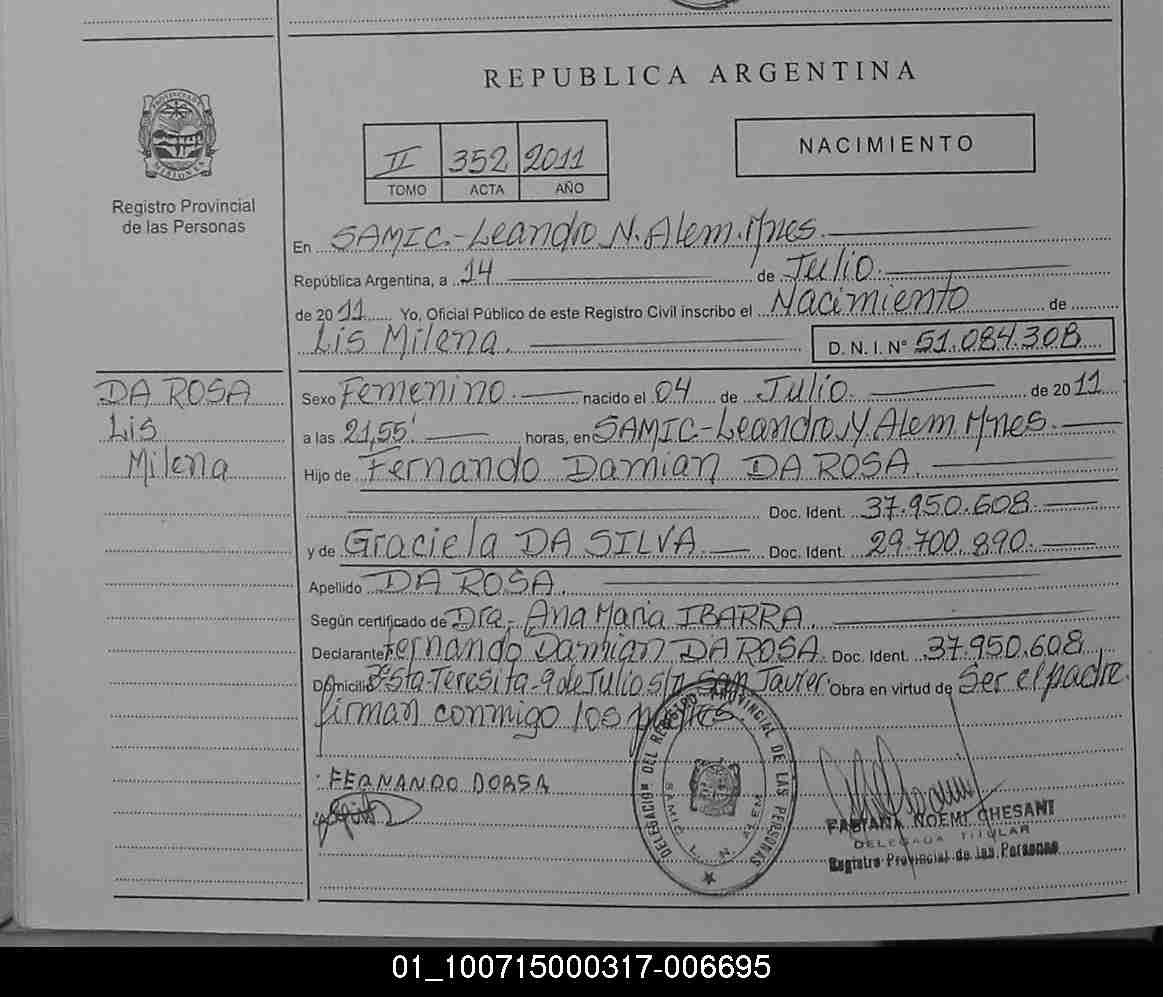 REPUBLICA ARGENTINA
PROVINCIA DE MISIONES
Registro Provincial
de las Personas
II 352 2011
TOMO ACTA AÑO
NACIMIENTO
En SAMIC.-Leandro N. Alem. Mnes.
República Argentina, a 14 de Julio.
de 2011 Yo, Oficial Público de este Registro Civil inscribo el Nacimiento de
Lis Milena. D. N. I. Nº 51.084.308
DA ROSA
Lis
Milena
Sexo Femenino. nacido el 04 de Julio. de 2011
a las 21,55' horas, en SAMIC-Leandro N. Alem Mnes.
Hijo de Fernando Damian DA ROSA.
Doc. Ident. 37.950.608
y de Graciela DA SILVA. Doc. Ident. 29.700.890
Apellido DA ROSA.
Según certificado de Dra. Ana Maria IBARRA
Declarante Fernando Damian DA ROSA. Doc. Ident. 37.950.608
Domicilio Bº Sta-Teresita-9 de Julio s/n San Javier. Obra en virtud de Ser el padre.
firman conmigo los padres.
FERNANDO DORSA
DELEGACION DEL REGISTRO PROVINCIAL DE LAS PERSONAS
SAMIC L. N. ALEM
FABIANA NOEMI CHESANI
DELEGADA TITULAR
Registro Provincial de las Personas
01_100715000317-006695